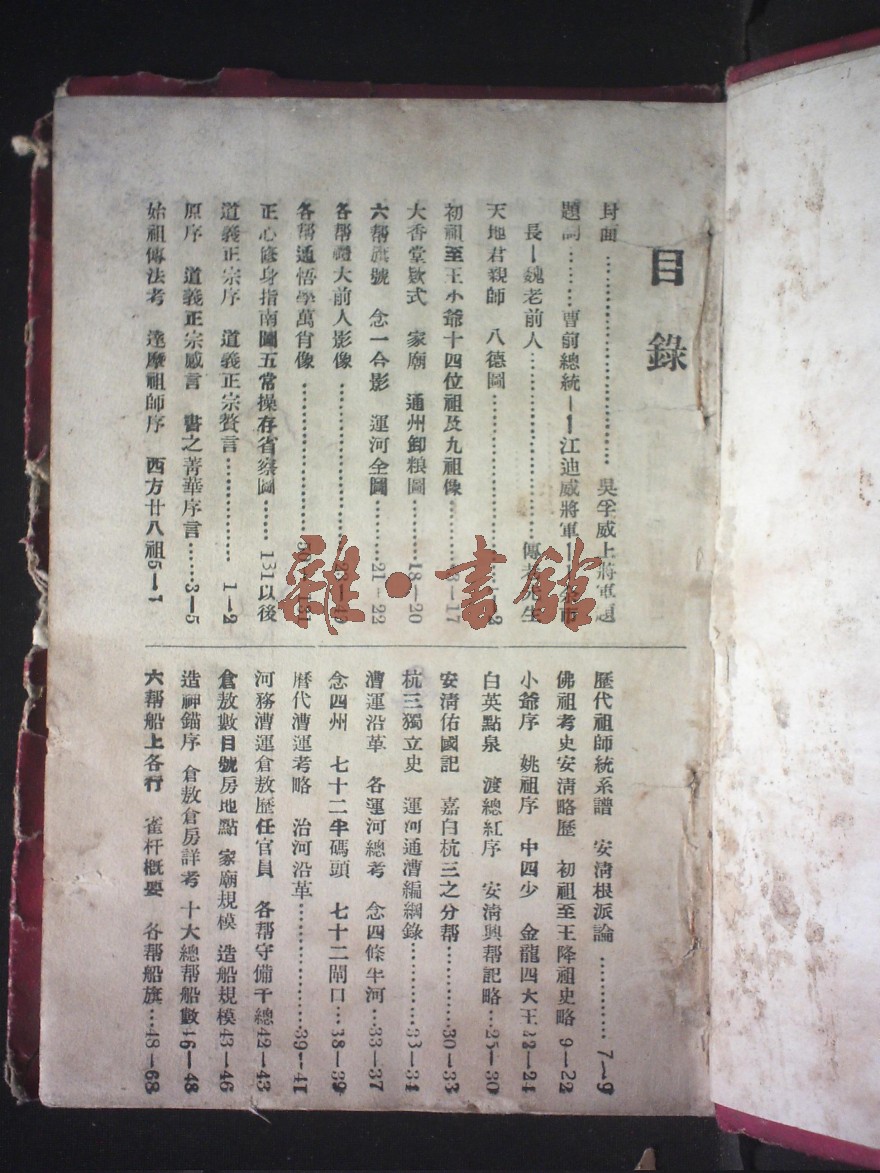 目錄
封面……………………吳孚威上將軍題
題詞………曹前總統—江迪威將軍
長—魏老前人……………傅老先生
天地君親師 八德圖…………2
初祖至王小爺十四位祖及九祖像………—17
大香堂欵式 家廟 通州卸粮圖……18—20
六帮旗號 念一今影 運河全圖……21—22
各帮禮大前人影像…………
各帮通悟學萬肖像…………
正心修身指南圖五常操存省察圖……131以後
道義正宗序 道義正宗贅言…………1—2
原序 道義正宗感言 書之菁華序言……3—5
始祖傳法考 達摩祖師序 西方廿八祖
歷代祖師統系譜 安淸根派論…………7—9
佛祖考史安淸略歷 初祖至王降祖史略 9—22
小爺序 姚祖序 中四少 金龍四大王22—24
白英點泉 渡總紅序 安淸興帮記略…25—30
安淸佑國記 嘉白杭三之分帮…………30—33
杭三獨立史 運河通漕編綱錄…………33—34
漕運沿革 各運河總考 念四條半河…33—37
念四州 七十二半碼頭 七十二閘口…38—39
曆代漕運考略 治河沿革…………39—41
河務漕運倉敖歷任官員 各帮守備千總42—43
倉敖數目號房地點 家廟規模 造船規模43—46
造神錨序 倉敖倉房詳考 十大總帮船數46—48
六帮船上各行 雀杆概要 各帮船旗…48—68
雜·書館